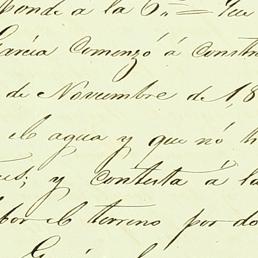 ponde á la 6ª = Que
García comenzó á constru
de Noviembre de 1,8
el agua y que nó t
es; y contesta á la
por el terreno por do